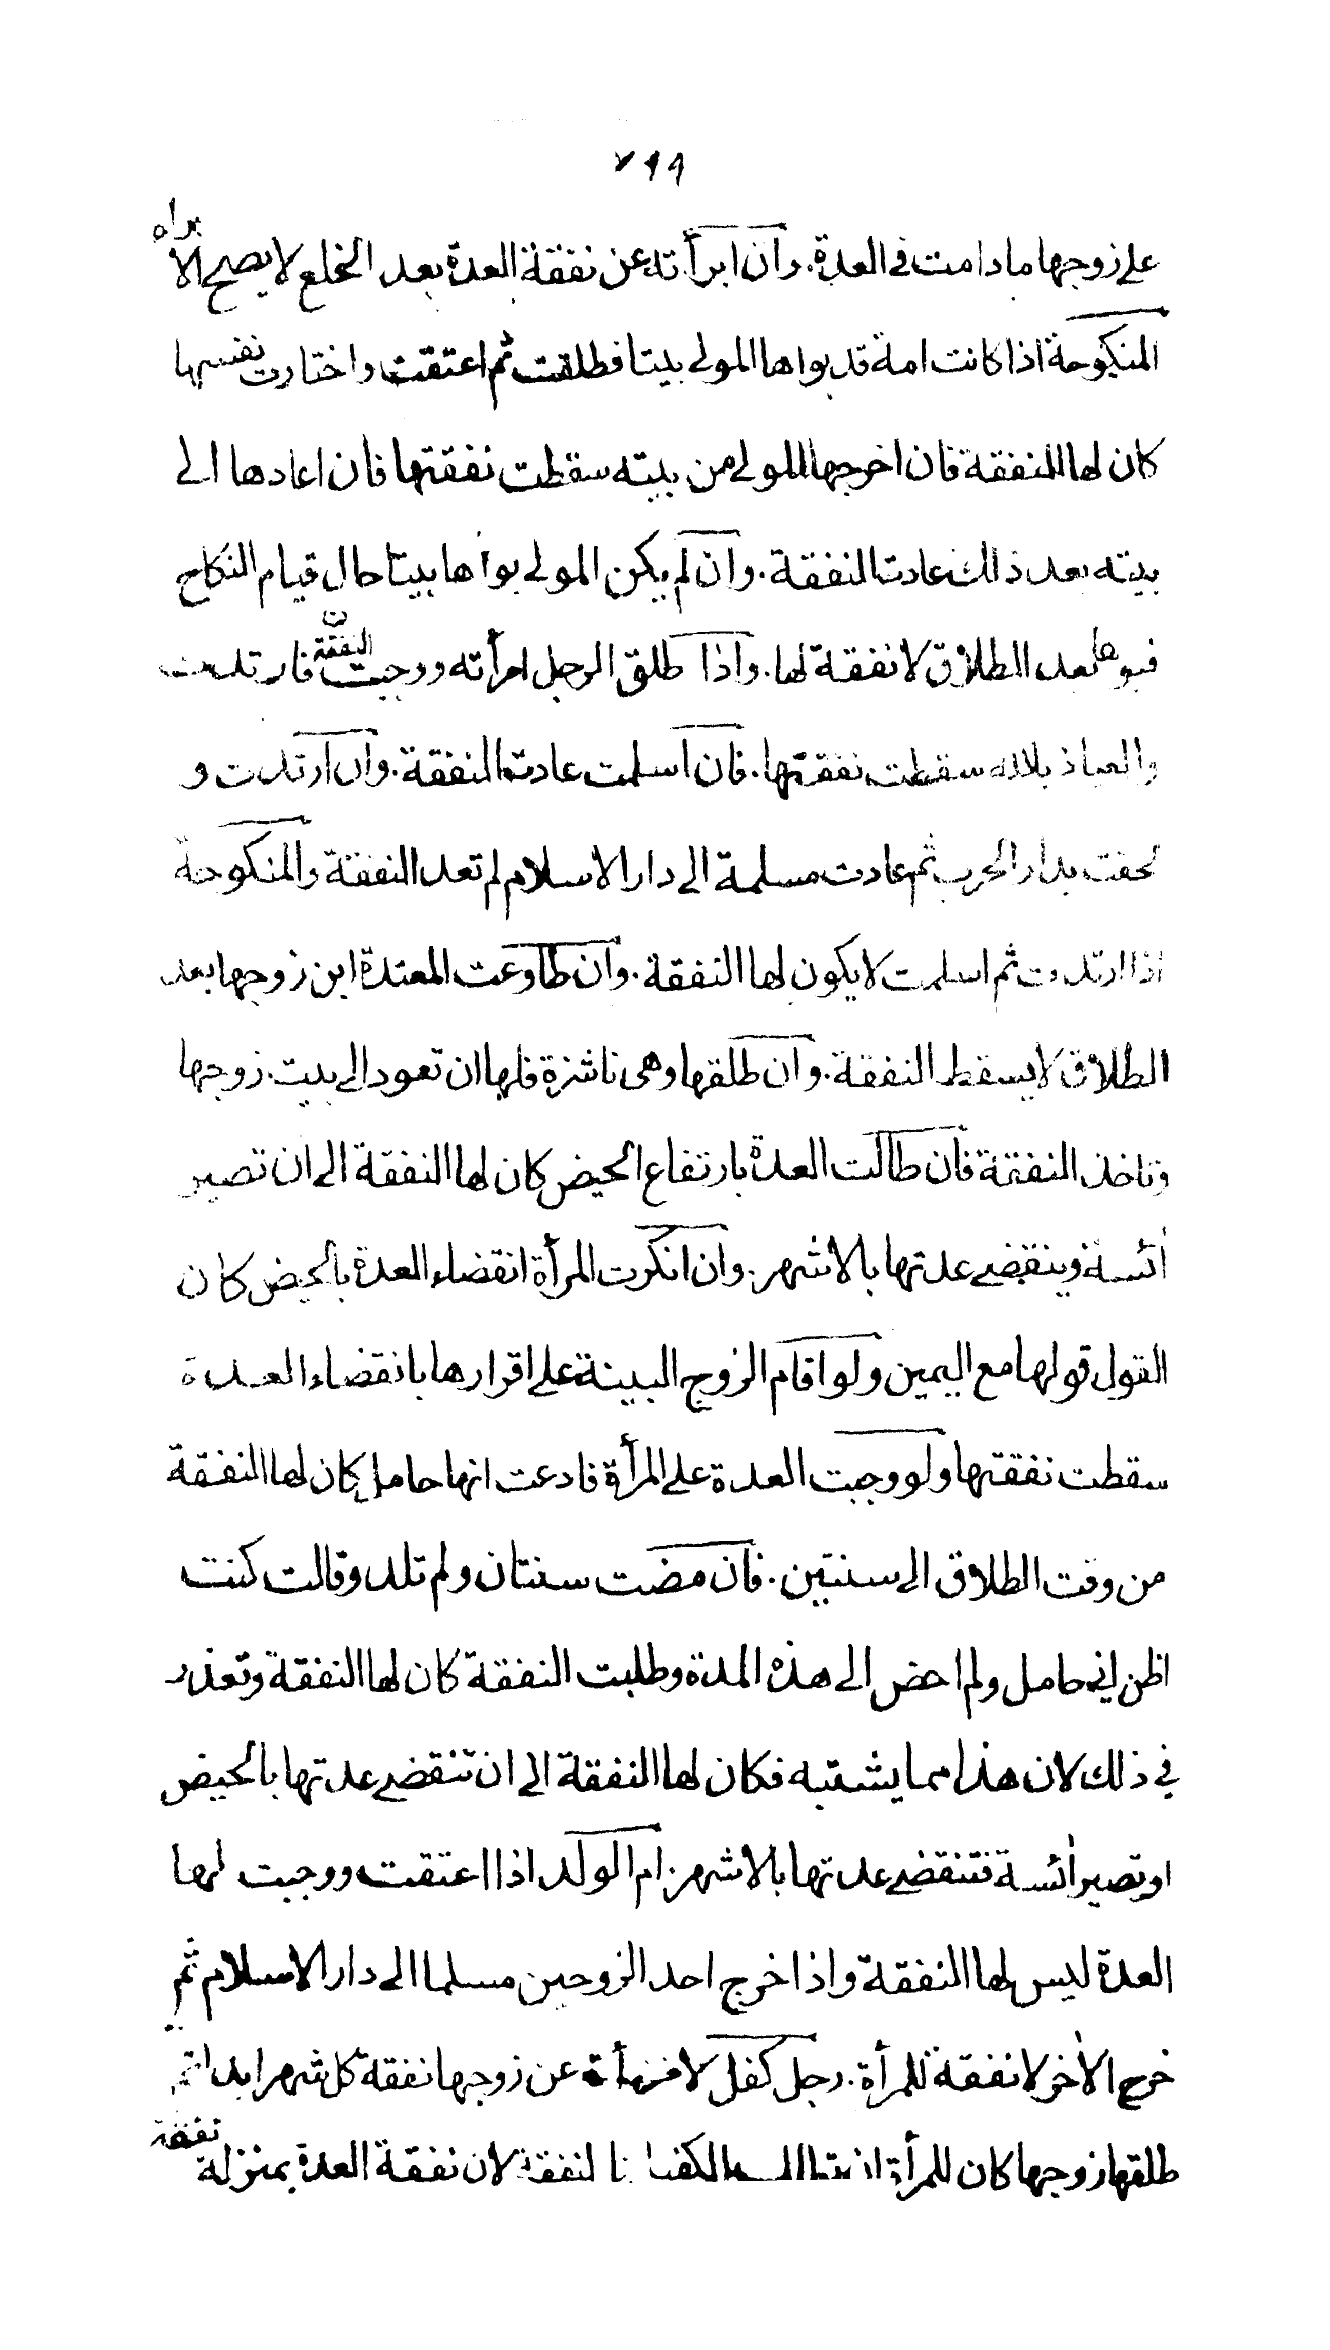 ٧٩٩
على زوجها ما دامت فى العدة. وان ابرأته عن نفقة العدة بعد الخلع لا يصح الابراه
المنكوحة اذا كانت امة قد بواها المولى بيتا فطلقت ثم اعتقت واختارت نفسها
كان لها النفقة فان اخرجها المولى من بيته سقطت نفقتها فان اعادها الى
بيته بعد ذلك عادت النفقة. وان لم يكن المولى بوأها بيتا حال قيام النكاح
فبوها بعد الطلاق لا نفقة لها. واذا طلق الرجل امرأته ووجبت النفقة فارتدت
والعياذ بالله سقطت نفقتها. فان اسلمت عادت النفقة. وان ارتدت و
لحقت بدار الحرب ثم عادت مسلمة الى دار الاسلام لم تعد النفقة والمنكوحة
اذا ارتدت ثم اسلمت لا يكون لها النفقة. وان طاوعت المعتدة ابن زوجها بعد
الطلاق لا يسقط النفقة. وان طلقها وهى ناشزة فلها ان تعود الى بيت زوجها
وتاخذ النفقة فان طالت العدة بارتفاع الحيض كان لها النفقة الى ان تصير
أئسة وينقضى عدتها بالاشهر. وان انكرت المرأة انقضاء العدة بالحيض كان
القول قولها مع اليمين ولو اقام الزوج البينة على اقرارها بانقضاء العدة
سقطت نفقتها ولو وجبت العدة على المرأة فادعت انها حامل كان لها النفقة
من وقت الطلاق الى سنتين. فان مضت سنتان ولم تلد وقالت كنت
اظن انى حامل ولم احض الى هذه المدة وطلبت النفقة كان لها النفقة وتعذر
فى ذلك لان هذا مما يشتبه فكان لها النفقة الى ان تنقضى عدتها بالحيض
او تصير أئسة فتنقضى عدتها بالاشهر. ام الولد اذا اعتقت ووجبت لها
العدة ليس لها النفقة واذا خرج احد الزوجين مسلما الى دار الاسلام ثم
خرج الأخر لا نفقة للمرأة. رجل كفل لامرأة عن زوجها نفقة كل شهر ابدا ثم
طلقها زوجها كان للمرأة ان الكفيل بالنفقة لان نفقة العدة بمنزلة نفقة